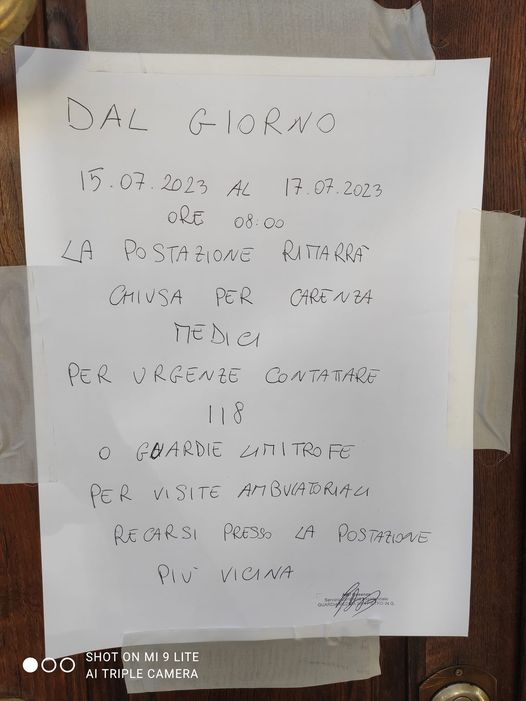 DAL GIORNO
15.07.2023 AL 17.07.2023
ORE 08:00
LA POSTAZIONE RIMARRÀ
CHIUSA PER CARENZA
MEDICI
PER URGENZE CONTATTARE
118
O GUARDIE LIMITROFE
PER VISITE AMBULATORIALI
RECARSI PRESSO LA POSTAZIONE
PIU' VICINA
SHOT ON MI 9 LITE
AI TRIPLE CAMERA